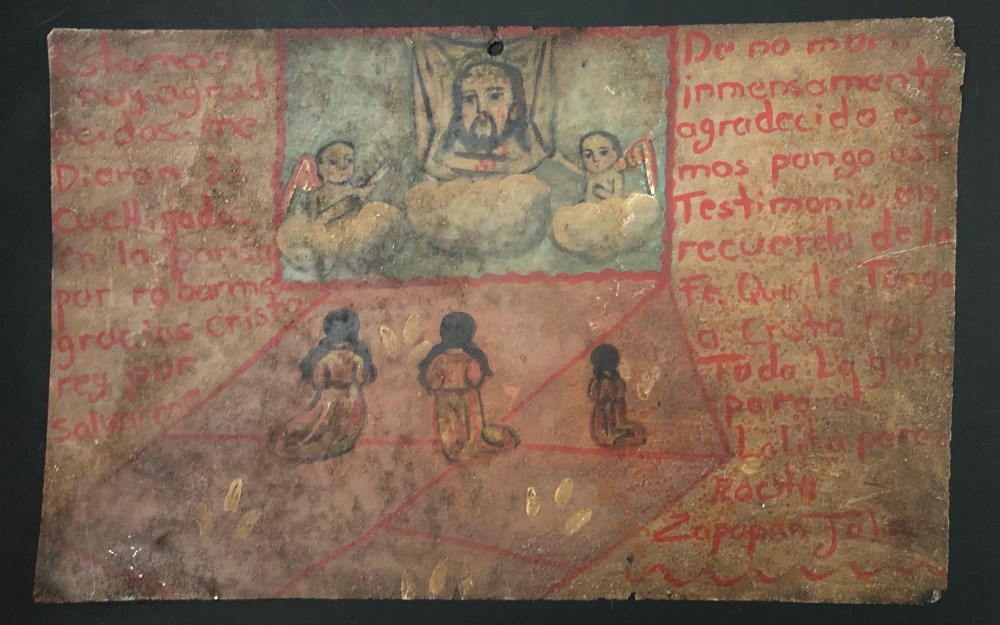 Estamos
muy agrad
ecidos me
Dieron 21
Cuchigadas
en la pansa
por robarme
gracias cristo
rey por
salvarme
De no morir
inmensamente
agradecido esta
mos pongo est
Testimonio en
recuerdo de la
Fe. Que le Tengo
a Cristo rey
Toda La gloria
para el
Lolita pare
Zapopan Jalis